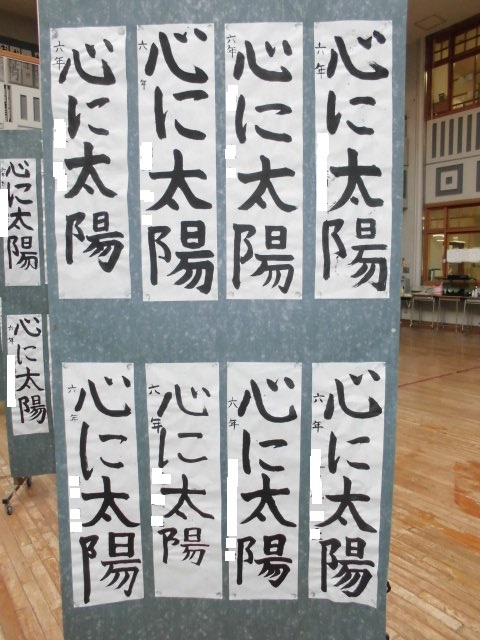 心に太陽
六年
心に太陽
六年
心に太陽
六年
心に太陽
六年
心に太陽
六年
心に太陽
六年
心に太陽
六年
心に太陽
六年
心に太陽
心に太陽
六年